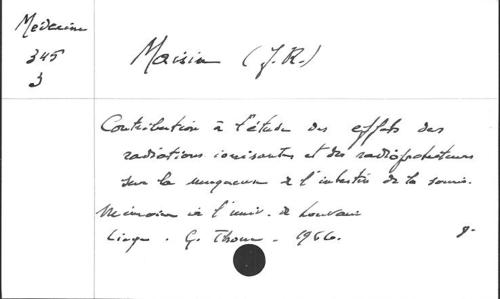 Médecine
345
3
Maisin (J.R.)
Contribution à l'étude des effets des
radiations ionisantes et des radioprotecteurs
sur la muqueuse de l'intestin de la souris.
Mémoire à l'univ. de Louvain
Liège. G. Thone. 1966.
8.